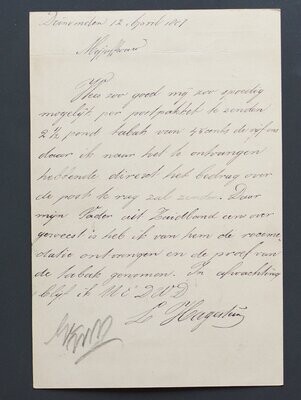 12 April
Mejuffrouw
Wees zoo goed mij zoo spoedig
mogelijk per postpakket te zenden
2½ pond tabak van
daar ik naar het te ontvangen
direct het bedrag over
de post te zal zenden. Daar
mijn Vader uit Zuidland een over
geweest is heb ik van hem de recom
datie ontvangen en de proef van
de tabak genomen. In afwachting
blijf ik UEDWD
L